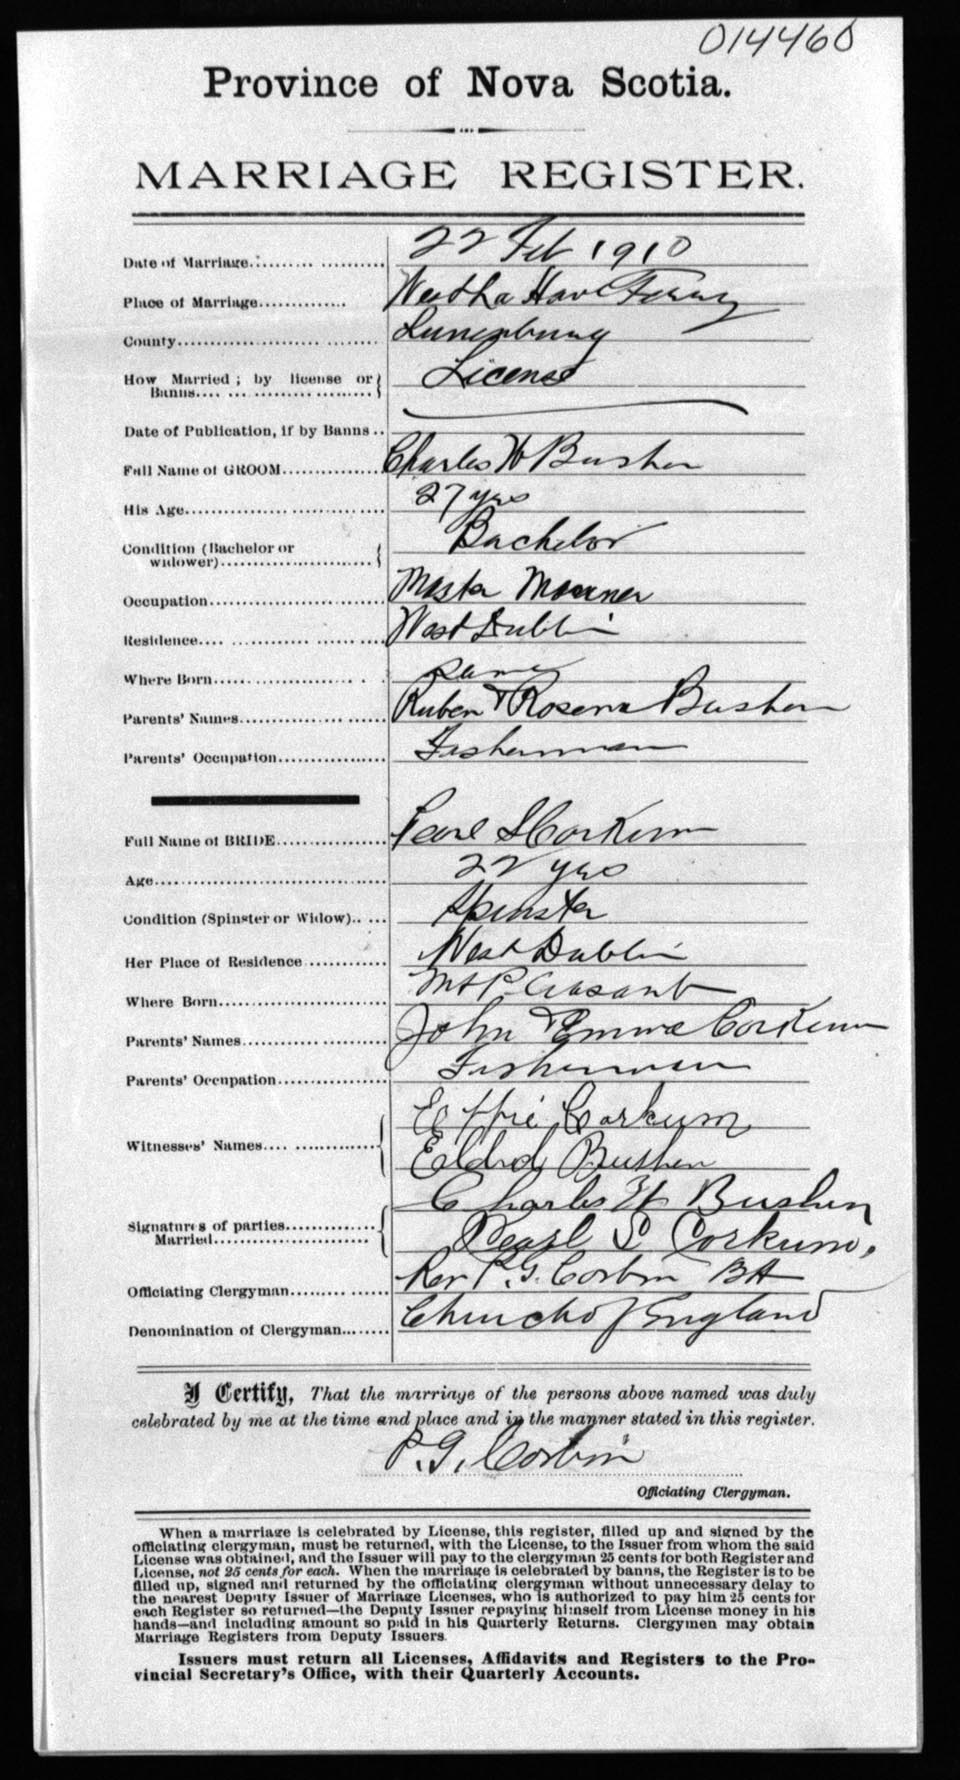 014460
Province of Nova Scotia.
MARRIAGE REGISTER.
Date of Marriage 22 Feb 1910
Place of Marriage West La Have Ferry
County Lunenburg
How Married; by license or Banns License
Date of Publication, if by Banns
Full Name of GROOM Charles W Bushen
His Age 27 yrs
Condition (Bachelor or widower) Bachelor
Occupation Master Mariner
Residence West Dublin
Where Born same
Parents' Names Ruben & Rosena Bushen
Parents' Occupation Fisherman
Full Name of BRIDE Pearl S Corkum
Age 22 yrs
Condition (Spinster or Widow) Spinster
Her Place of Residence West Dublin
Where Born Mt Pleasant
Parents' Names John & Emma Corkum
Parents' Occupation Fisherman
Witnesses' Names Effie Corkum
Bushen
Signatures of parties Married Charles W Bushen
Pearl S Corkum.
Officiating Clergyman Rev P. G. Corbin BA
Denomination of Clergyman Church of England
I Certify, That the marriage of the persons above named was duly
celebrated by me at the time and place and in the manner stated in this register.
P. G. Corbin
Officiating Clergyman.
When a marriage is celebrated by License, this register, filled up and signed by the
officiating clergyman, must be returned, with the License, to the Issuer from whom the said
License was obtained, and the Issuer will pay to the clergyman 25 cents for both Register and
License, not 25 cents for each. When the marriage is celebrated by banns, the Register is to be
filled up, signed and returned by the officiating clergyman without unnecessary delay to
the nearest Deputy Issuer of Marriage Licenses, who is authorized to pay him 25 cents for
each Register so returned—the Deputy Issuer repaying himself from License money in his
hands—and including amount so paid in his Quarterly Returns. Clergymen may obtain
Marriage Registers from Deputy Issuers.
Issuers must return all Licenses, Affidavits and Registers to the Pro-
vincial Secretary's Office, with their Quarterly Accounts.